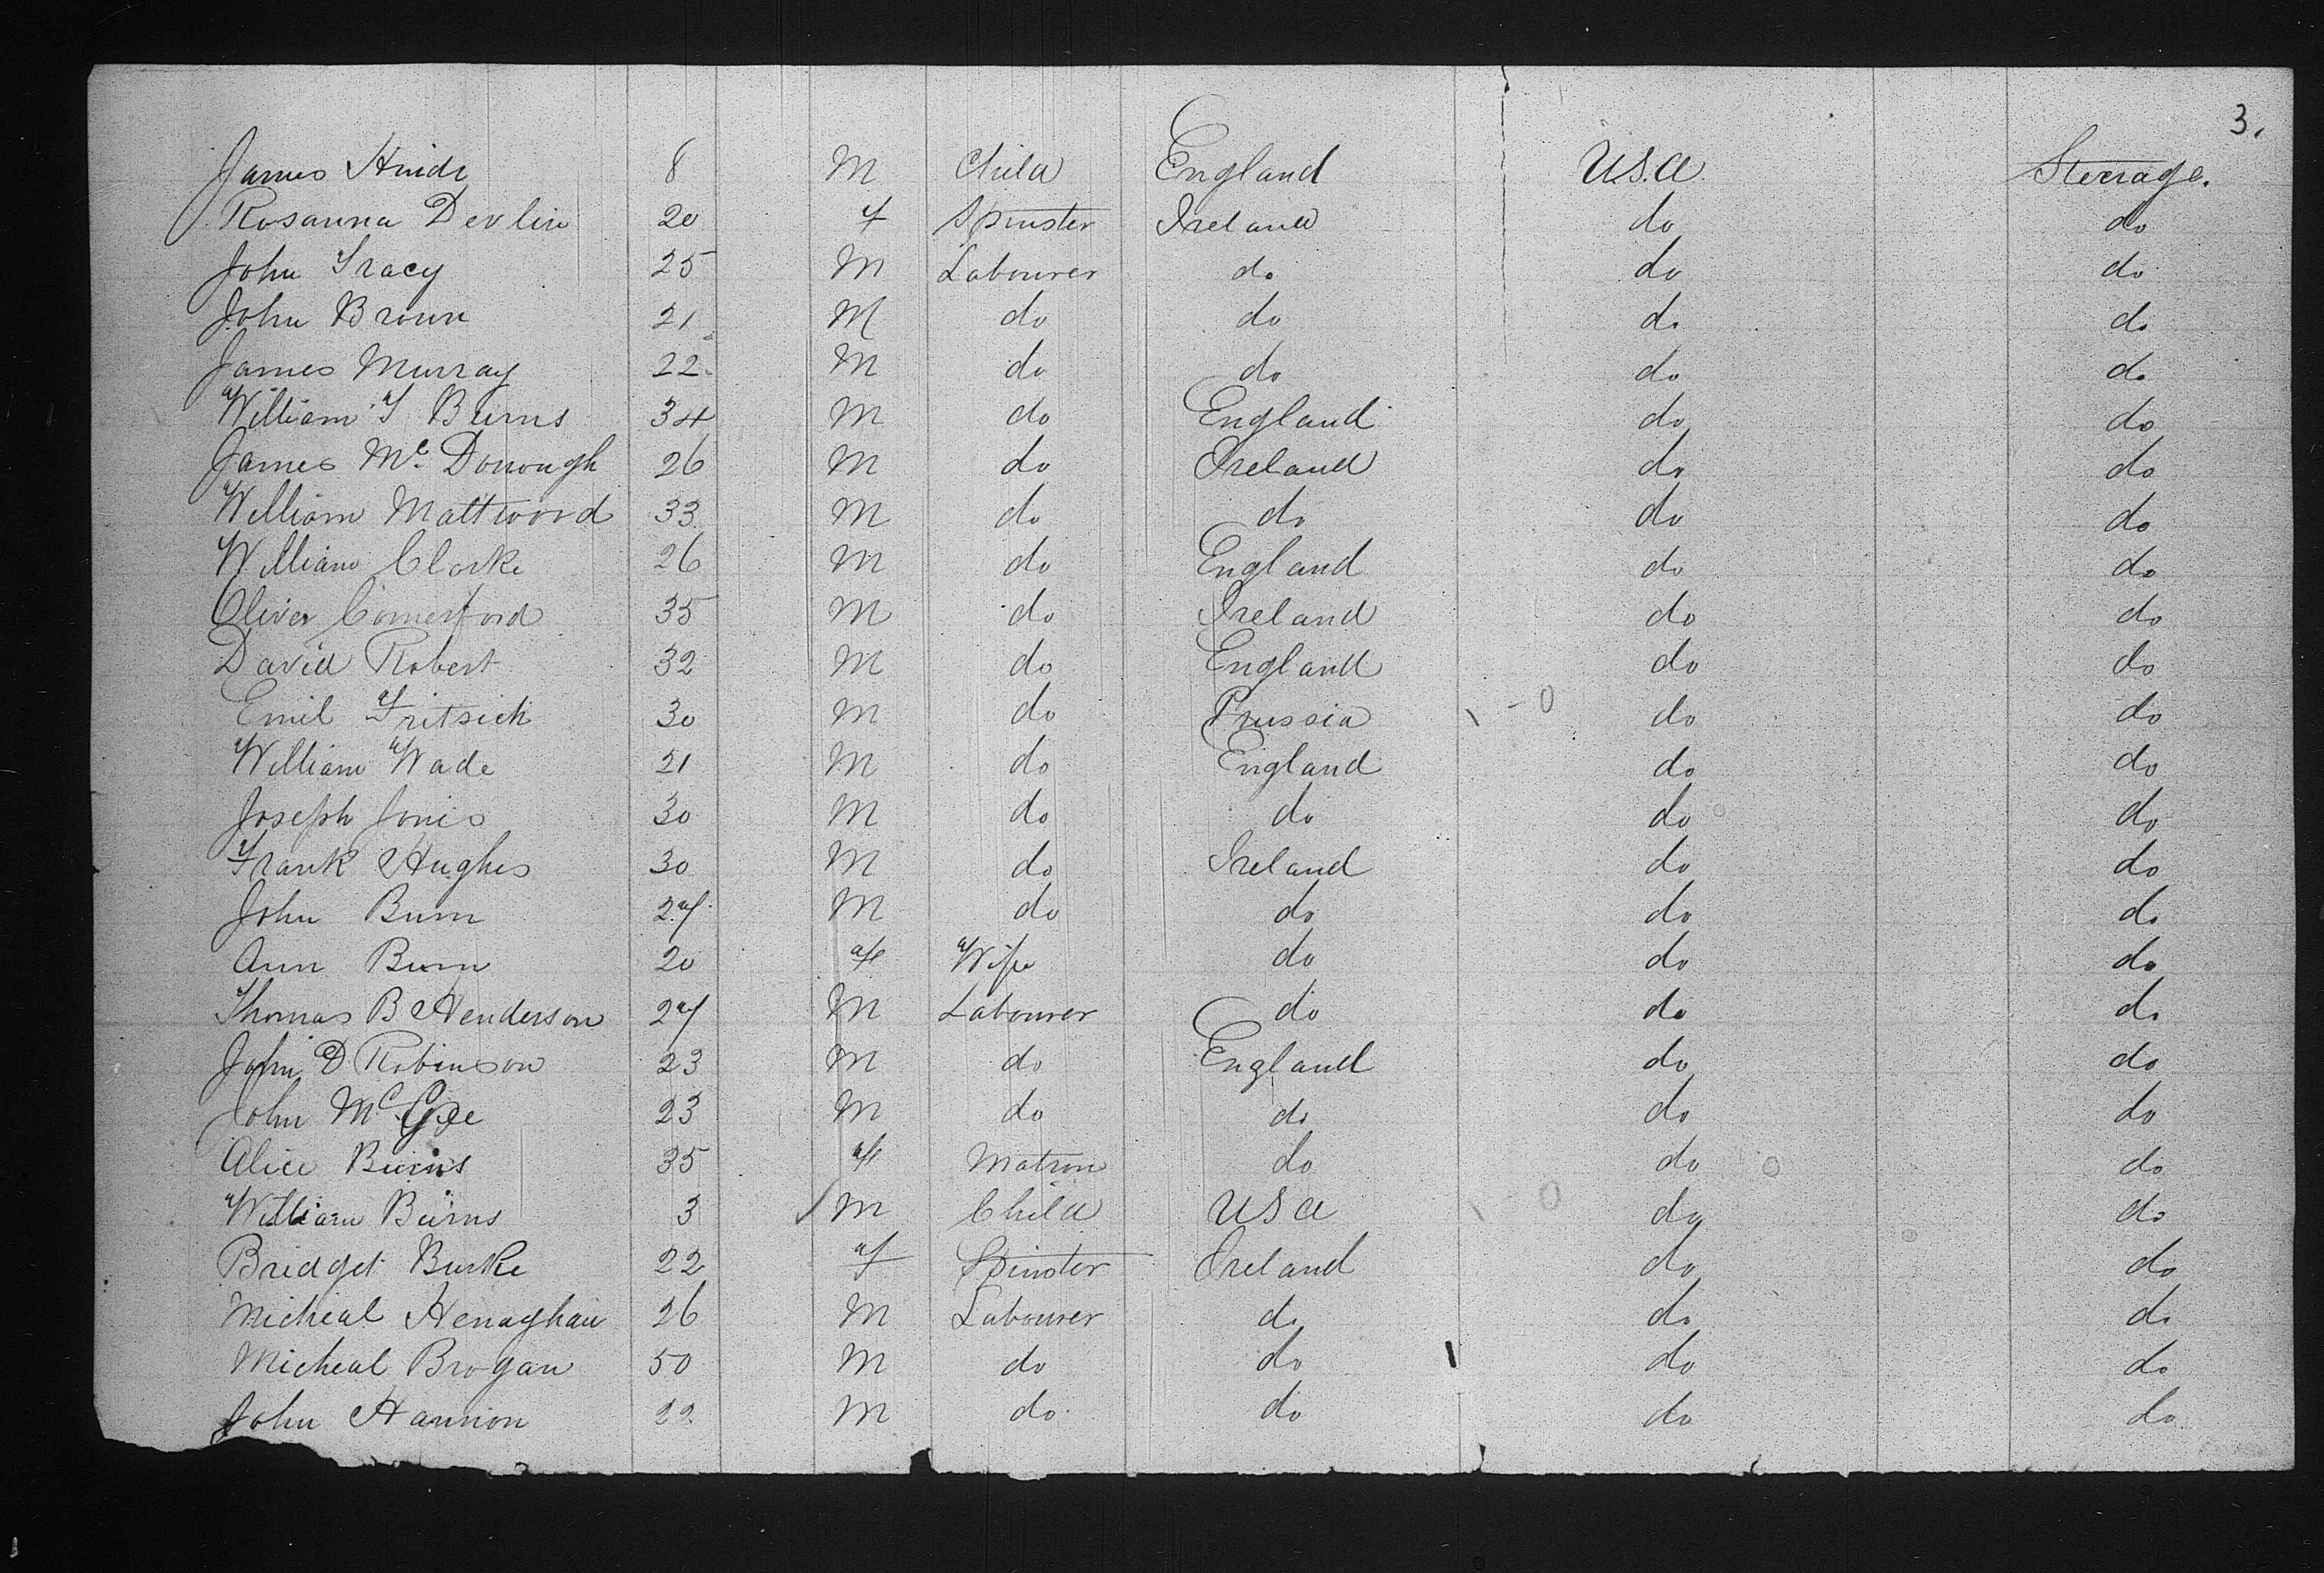 3.
James Hinde 8 M Child England U.S.A Steerage.
Rosanna Devlin 20 f Spinster Ireland do do
John Tracy 25 M Labourer do do do
John Brown 21 M do do do do
James Murray 22 M do do do do
William T Burns 34 M do England do do
James Mc Donough 26 M do Ireland do do
William Mattwood 33 M do do do do
William Clarke 26 M do England do do
Oliver Comerford 35 M do Ireland do do
David Robert 32 M do England do do
Emil Fritsich 30 M do Prussia do do
William Wade 21 M do England do do
Joseph Jones 30 M do do do do
Frank Hughes 30 M do Ireland do do
John Burn 27 M do do do do
Ann Burn 20 f Wife do do do
Thomas B Henderson 27 M Labourer do do do
John D Robinson 23 M do England do do
John McGee 23 M do do do do
Alice Burns 35 f Matron do do do
William Burns 3 M Child USA do do
Bridget Burke 22 f Spinster Ireland do do
Micheal Henaghan 26 M Labourer do do do
Micheal Brogan 50 M do do do do
John Hannon 22 M do do do do